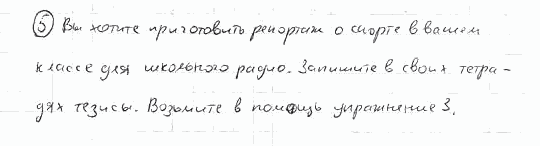 ⑤ Вы хотите приготовить репортаж о спорте в вашем
классе для школьного радио. Запишите в своих тетра-
дях тезисы. Возьмите в помощь упражнение 3.